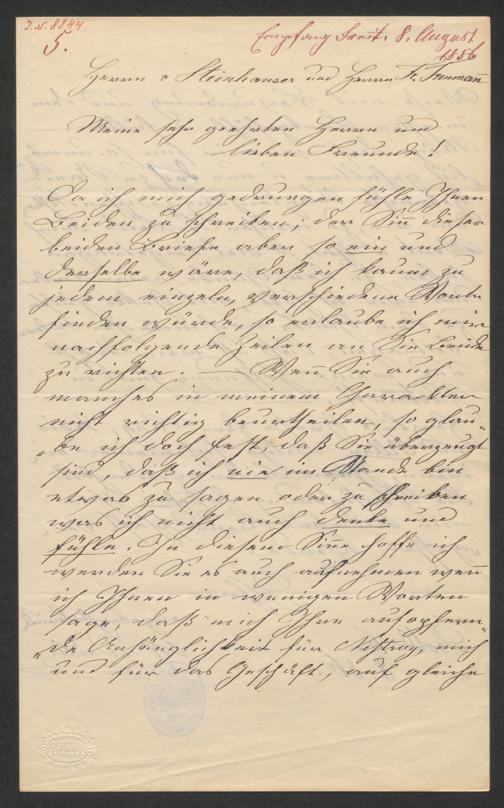 J.N. 8844
5.
Empfang Freit. 8. August
1856
Herrn v Steinhauser und Herrn Fr. Treumann
Meine sehr geehrten Herrn und
lieben Freunde!
Da ich mich gedrungen fühle Ihnen
Beiden zu schreiben; der Sin̅ dieser
beiden Briefe aber so ein und
derselbe wäre, daß ich kaum zu
jedem einzeln, verschiedene Worte
finden würde, so erlaube ich mir
nachfolgende Zeilen an Sie Beide
zu richten. — Wen̅ Sie auch
manches in meinem Charackter
nicht richtig beurtheilen, so glau-
be ich doch fest, daß Sie überzeugt
sind, daß ich nie im Stande bin
etwas zu sagen oder zu schreiben
was ich nicht auch denke und
fühle. In diesem Sin̅e hoffe ich
werden Sie es auch aufnehmen wen̅
ich Ihnen in wenigen Worten
sage, daß mich Ihre aufopfern-
de Anhänglichkeit für Nestroy, mich
und für das Geschäft, auf gleiche